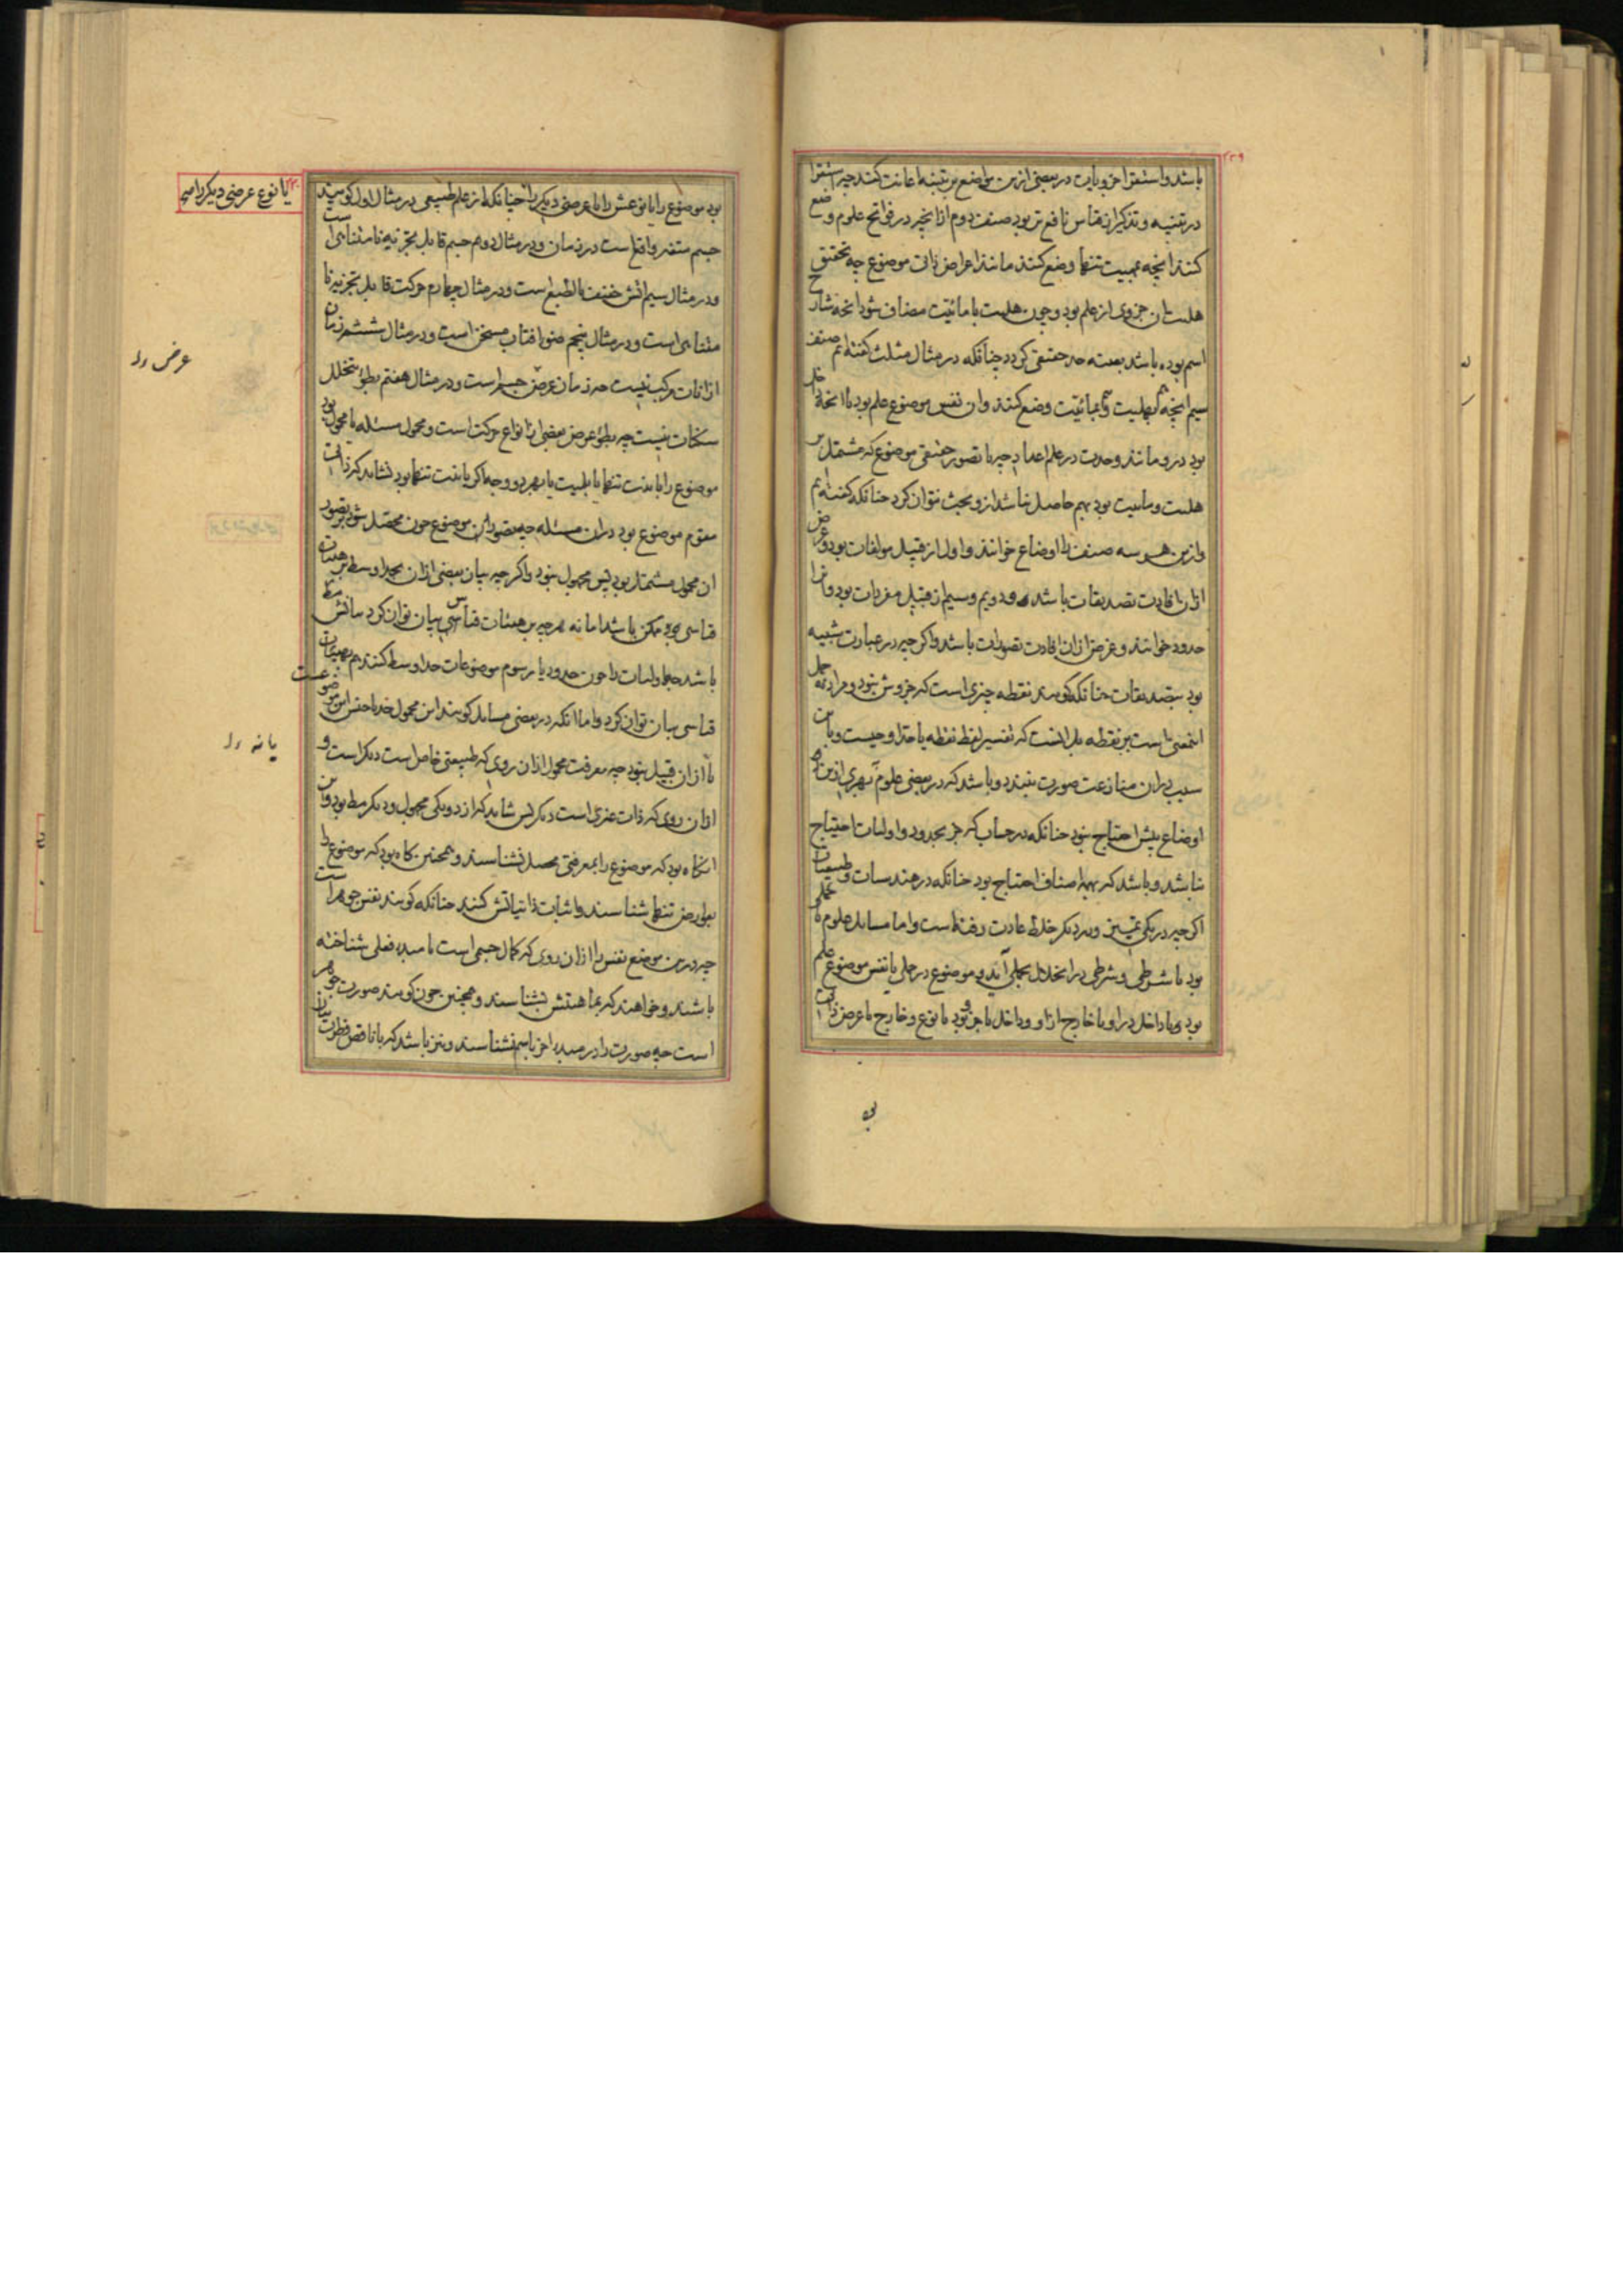 ۲۳۹
باشد و استقرا جزویات در بعضی ازین مواضع بر تنبیه اعانت کند چه استقرا
در تنبیه و تذکیر از قیاس نافع تر بود صنف دوم از انچه در فواتح علوم وضع
کنند انچه بهلیت تنها وضع کنند مانند اعراض ذاتی موضوع چه تحقیق
هلیت ان جزوی از علم بود و چون هلیت با مائیت مضاف شود انچه شارح
اسم بوده باشد بعینه حد حقیقی گردد چنانکه در مثال مثلث گفته ایم صنف
سیم انچه هم بهلیت و هم بمائیت وضع کنند و ان نفس موضوع علم بود یا انچه داخل
بود درو مانند وحدت در علم اعداد چه تا تصور حقیقی موضوع که مشتمل بر
هلیت و مائیت بود بهم حاصل نباشد ازو بحث نتوان کرد چنانکه گفته ایم
و ازین هر سه صنف را اوضاع خوانند و اول از قبیل مولفات بود و غرض
ازان افادت تصدیقات باشد و دویم و سیم از قبیل مفردات بود و انرا
حدود خوانند و غرض ازان افادت تصورات باشد و اگر چه در عبارت شبیه
بود بتصدیقات چنانکه گویند نقطه چیزی است که جزوش نبود و مراد نه حمل
اینمعنی است بر نقطه بل انست که تفسیر لفظ نقطه یا حد او چیست و باین
سبب دران منازعت صورت نبندد و باشد که در بعضی علوم ببهری ازین
اوضاع بیش احتیاج نبود چنانکه در حساب که جز بحدود و اولیات احتیاج
نباشد و باشد که بهمه اصناف احتیاج بود چنانکه در هندسیات و طبیعیات
اگر چه در یکی تمییز و در دیگر خلط عادت رفته است و اما مسایل علوم یا حملی
بود یا شرطی و شرطی در انحلال بحملی آید و موضوع در حملی یا نفس موضوع علم
بود و یا داخل در او یا خارج از او و داخل یا جزو بود یا نوع و خارج یا عرض ذاتی
۲۴۰
یا نوع عرضی دیگر را
بود موضوع را یا نوعش را یا عرضی دیگر را چنانکه از علم طبیعی در مثال اول گویند
جسم متغیر واقع است در زمان و در مثال دوم جسم قابل تجزیه نامتناهی است
و در مثال سیم اتش خفیف بالطبع است و در مثال چهارم حرکت قابل تجزیه نا
متناهی است و در مثال پنجم ضوء افتاب مسخن است و در مثال ششم زمان
از انات مرکب نیست چه زمان عرض جسم است و در مثال هفتم بطؤ بتخلل
سکنات نیست چه بطؤ عرض بعضی انواع حرکت است و محمول مسئله یا مجهول بود
موضوع را بائیت تنها یا بلمیت یا بهر دو وجه اگر بائیت تنها بود نشاید که ذاتی
مقوم موضوع بود دران مسئله چه تصور این موضوع چون محصل شود بر تصور
ان محمول مشتمل بود پس مجهول نبود و اگر چه بیان بعضی ازان بحد اوسط بر هیئات
قیاسی ممکن باشد اما نه هر چه بر هیئات قیاسی بیان توان کرد بیانش
باشد چه اولیات را چون حدود یا رسوم موضوعات حد اوسط کنند هم بهیئات
قیاسی بیان توان کرد و اما انکه در بعضی مسایل گویند این محمول جنس این موضوعست
یا نه از ان قبیل نبود چه معرفت محمول ازان روی که طبیعتی خاص است دیگر است و
ازان روی که ذات غیری است دیگر پس شاید که از دو یکی مجهول و دیگر مط بود و این
انگاه بود که موضوع را بمعرفتی محصل نشناسند و همچنین گاه بود که موضوع را
بعوارض تنها شناسند و اثبات ذاتیاتش کنند چنانکه گویند نفس جوهر است
چه درین موضع نفس را ازان روی که کمال جسمی است یا مبدء فعلی شناخته
باشند و خواهند که بماهیتش بشناسند و همچنین چون گویند صورت جوهر
است چه صورت را در مبدء جز باسم نشناسند و نیز باشد که با ناقص فطرت بیان
عرض را
یا نه را
بو